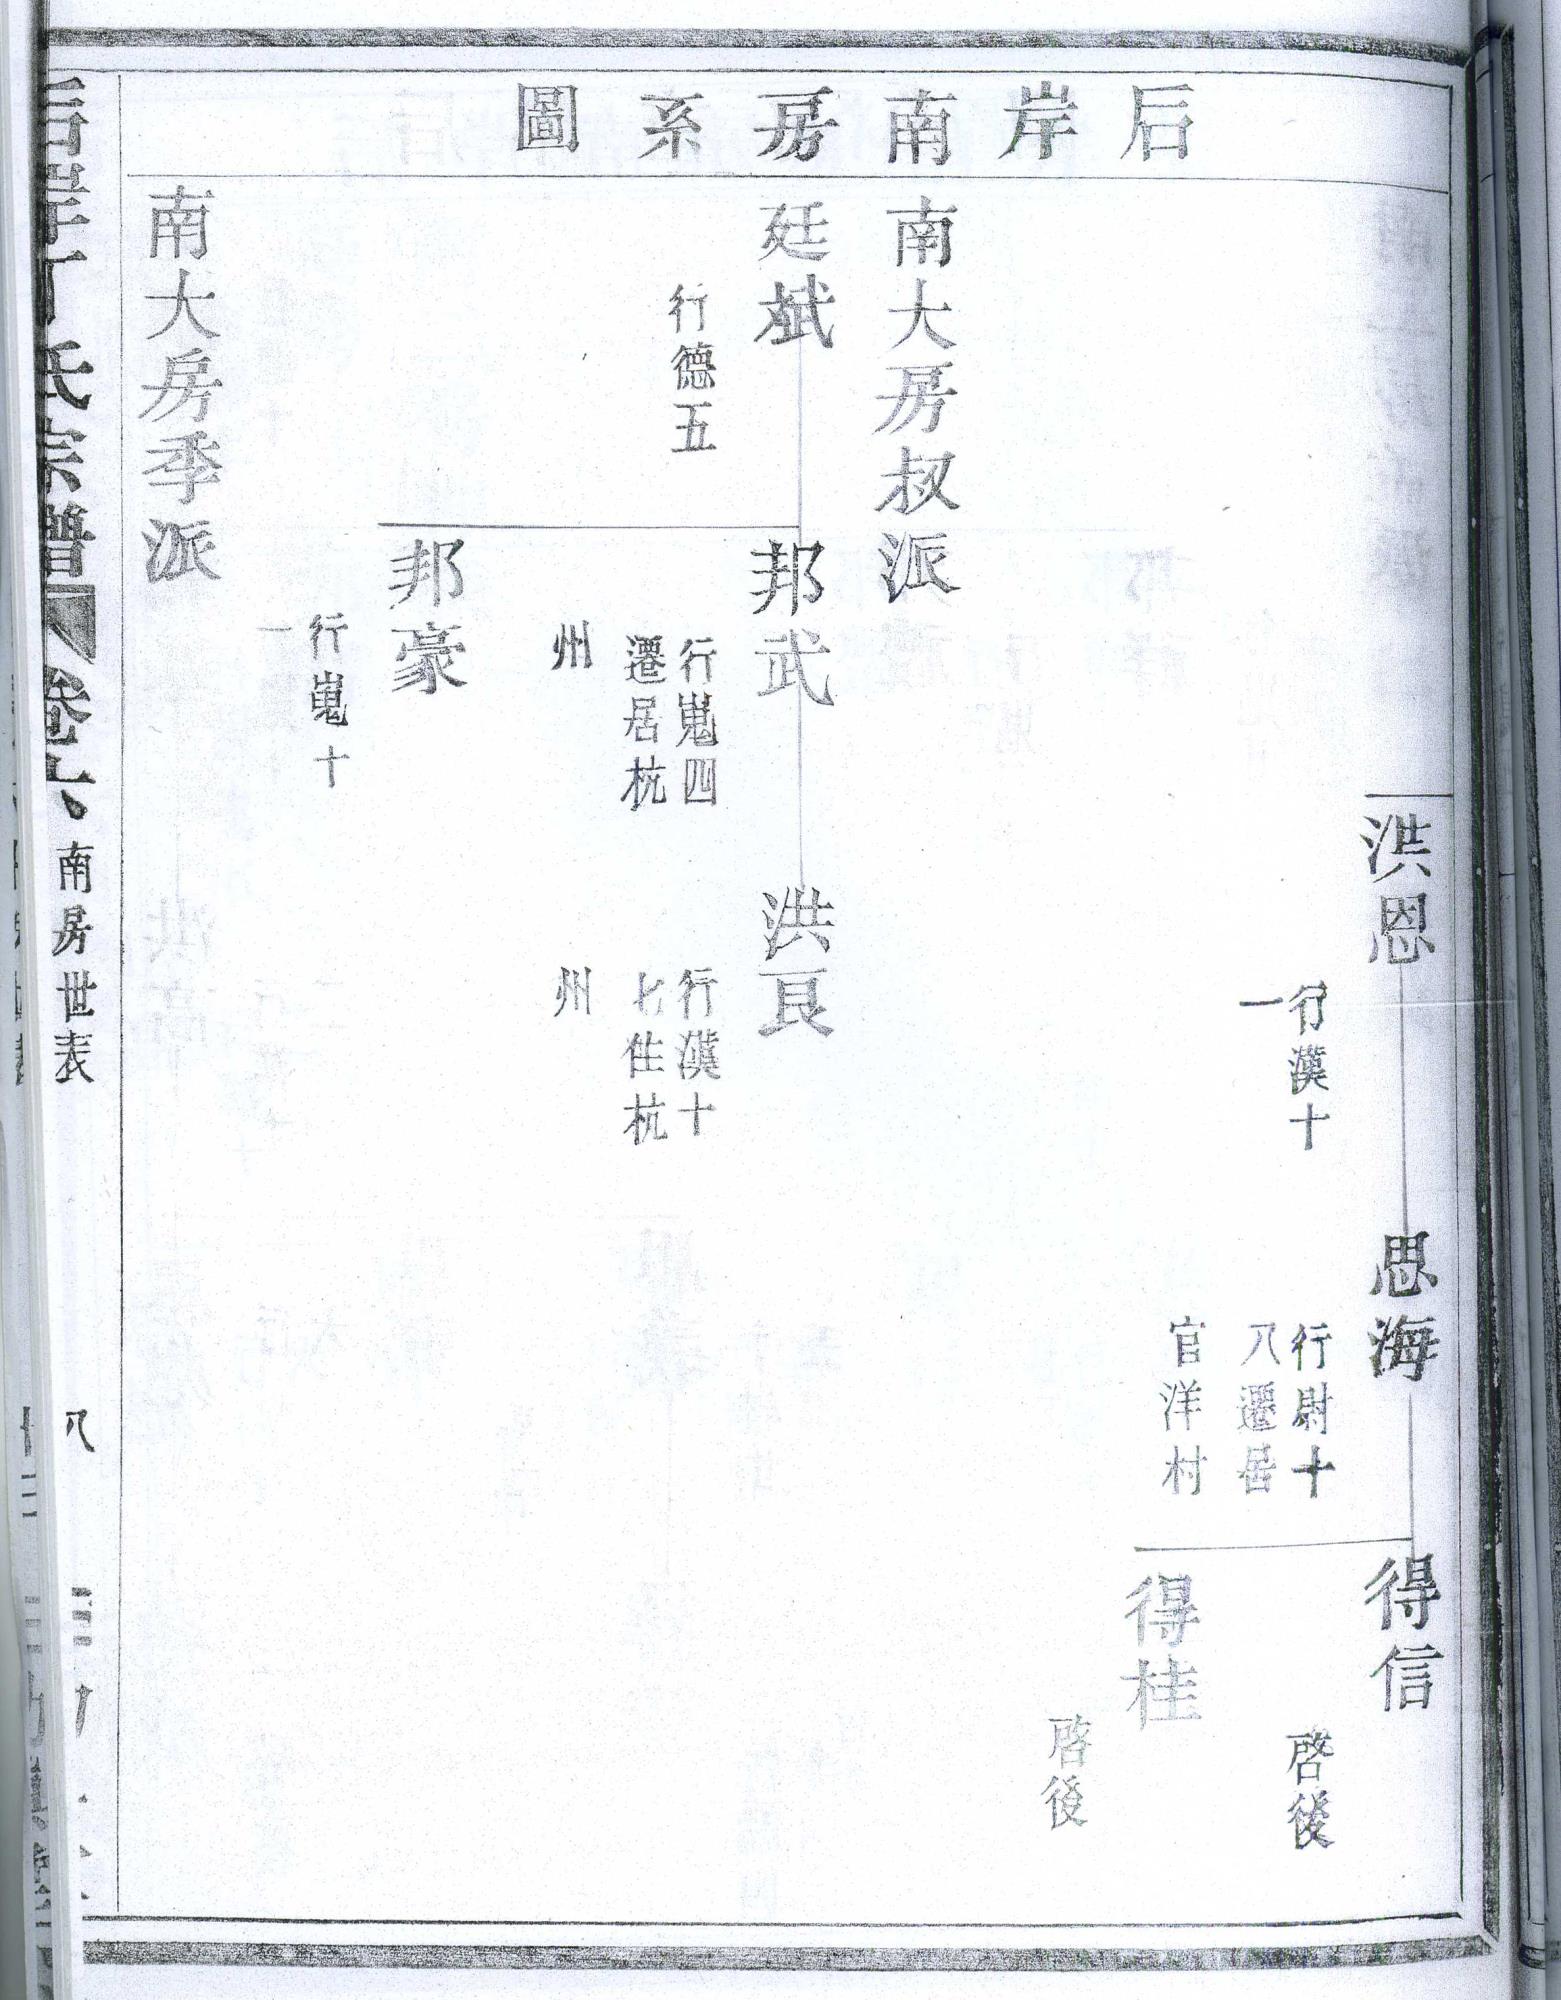 后岸南房系圖
洪恩
行漢十
一
思海
行尉十
八遷居
官洋村
得信
啓後
得桂
啓後
南大房叔派
廷斌
行德五
邦武
行嵬四
遷居杭
州
洪良
行漢十
七住杭
州
邦豪
行嵬十
一
南大房季派
后岸丁氏宗譜
卷六
南房世表
八